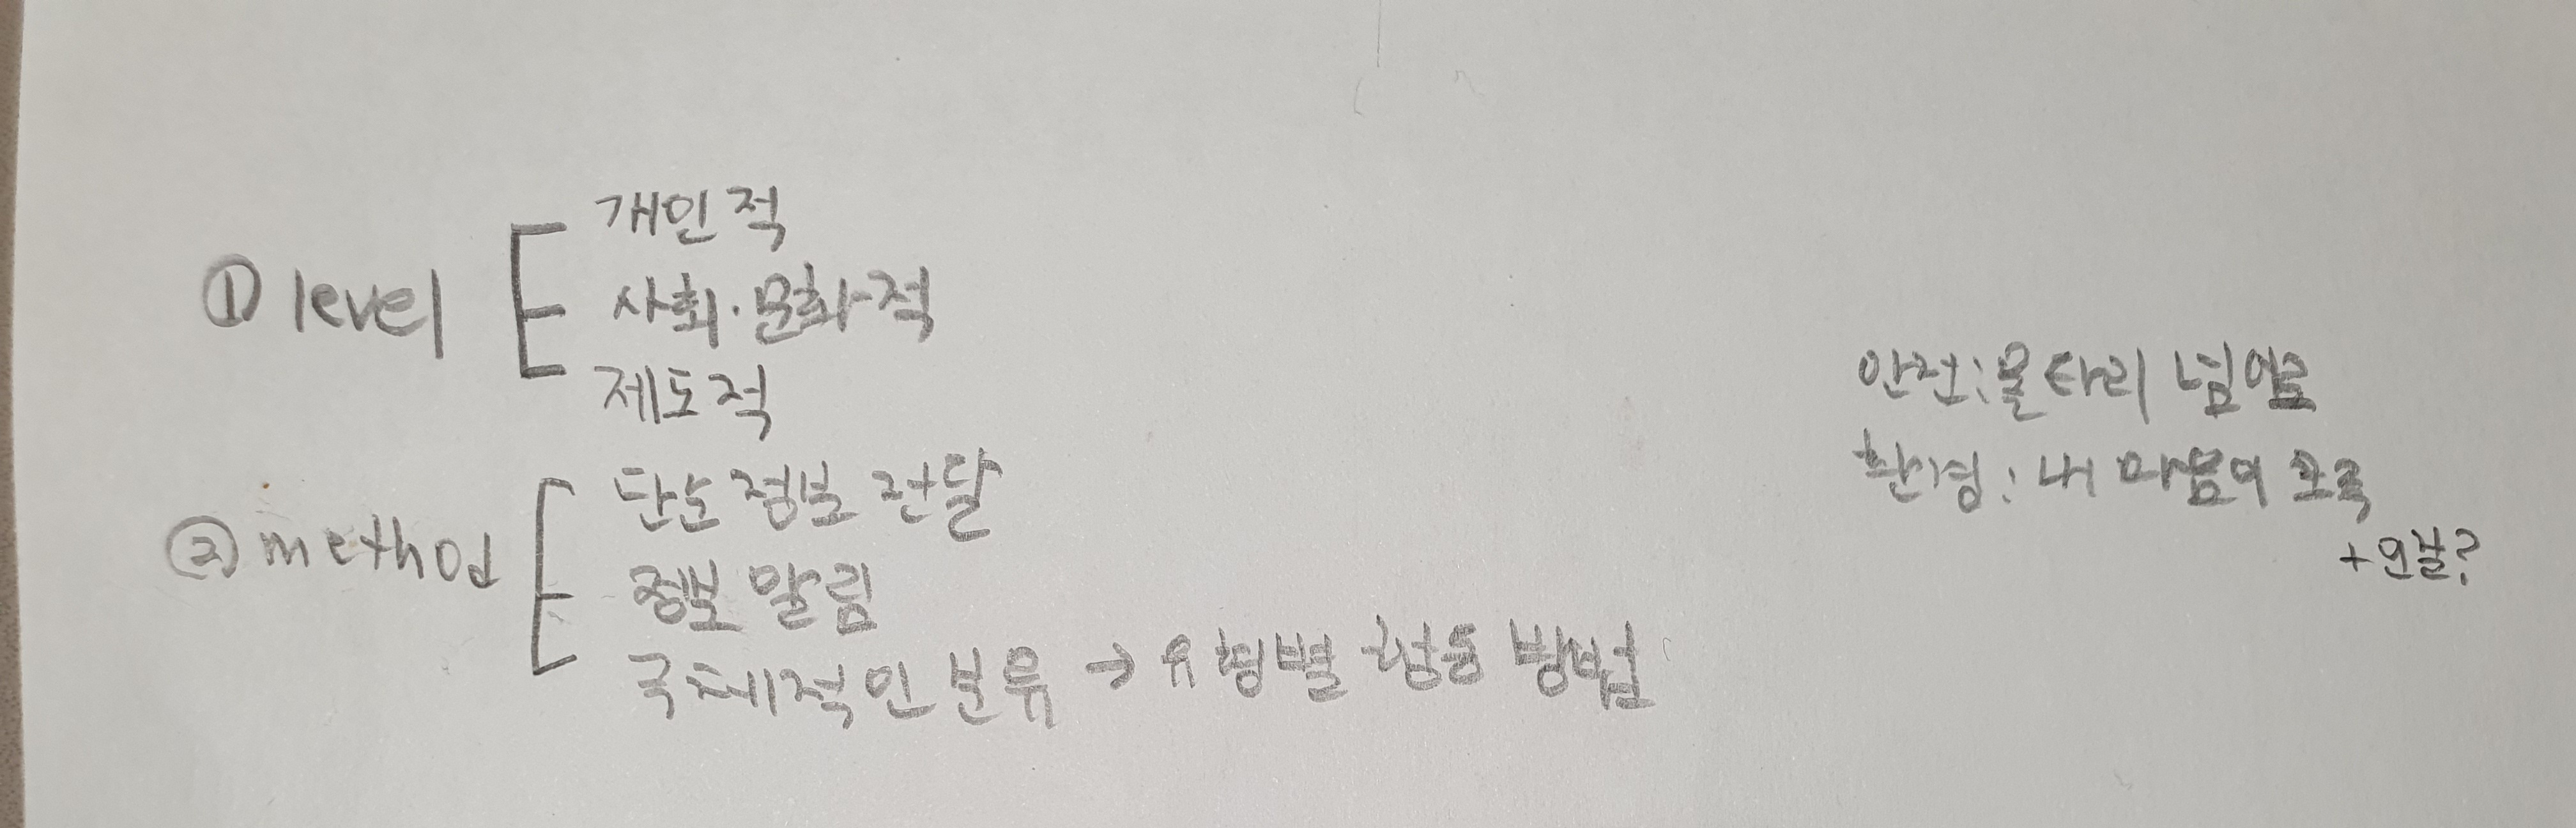 ① level
개인적
사회·문화적
제도적
② method
단순 정보 전달
정보 알림
구체적인 분류 → 유형별 행동 방법
안전: 울타리 넘어로
환경: 내 마음의 초록
+ 인간?